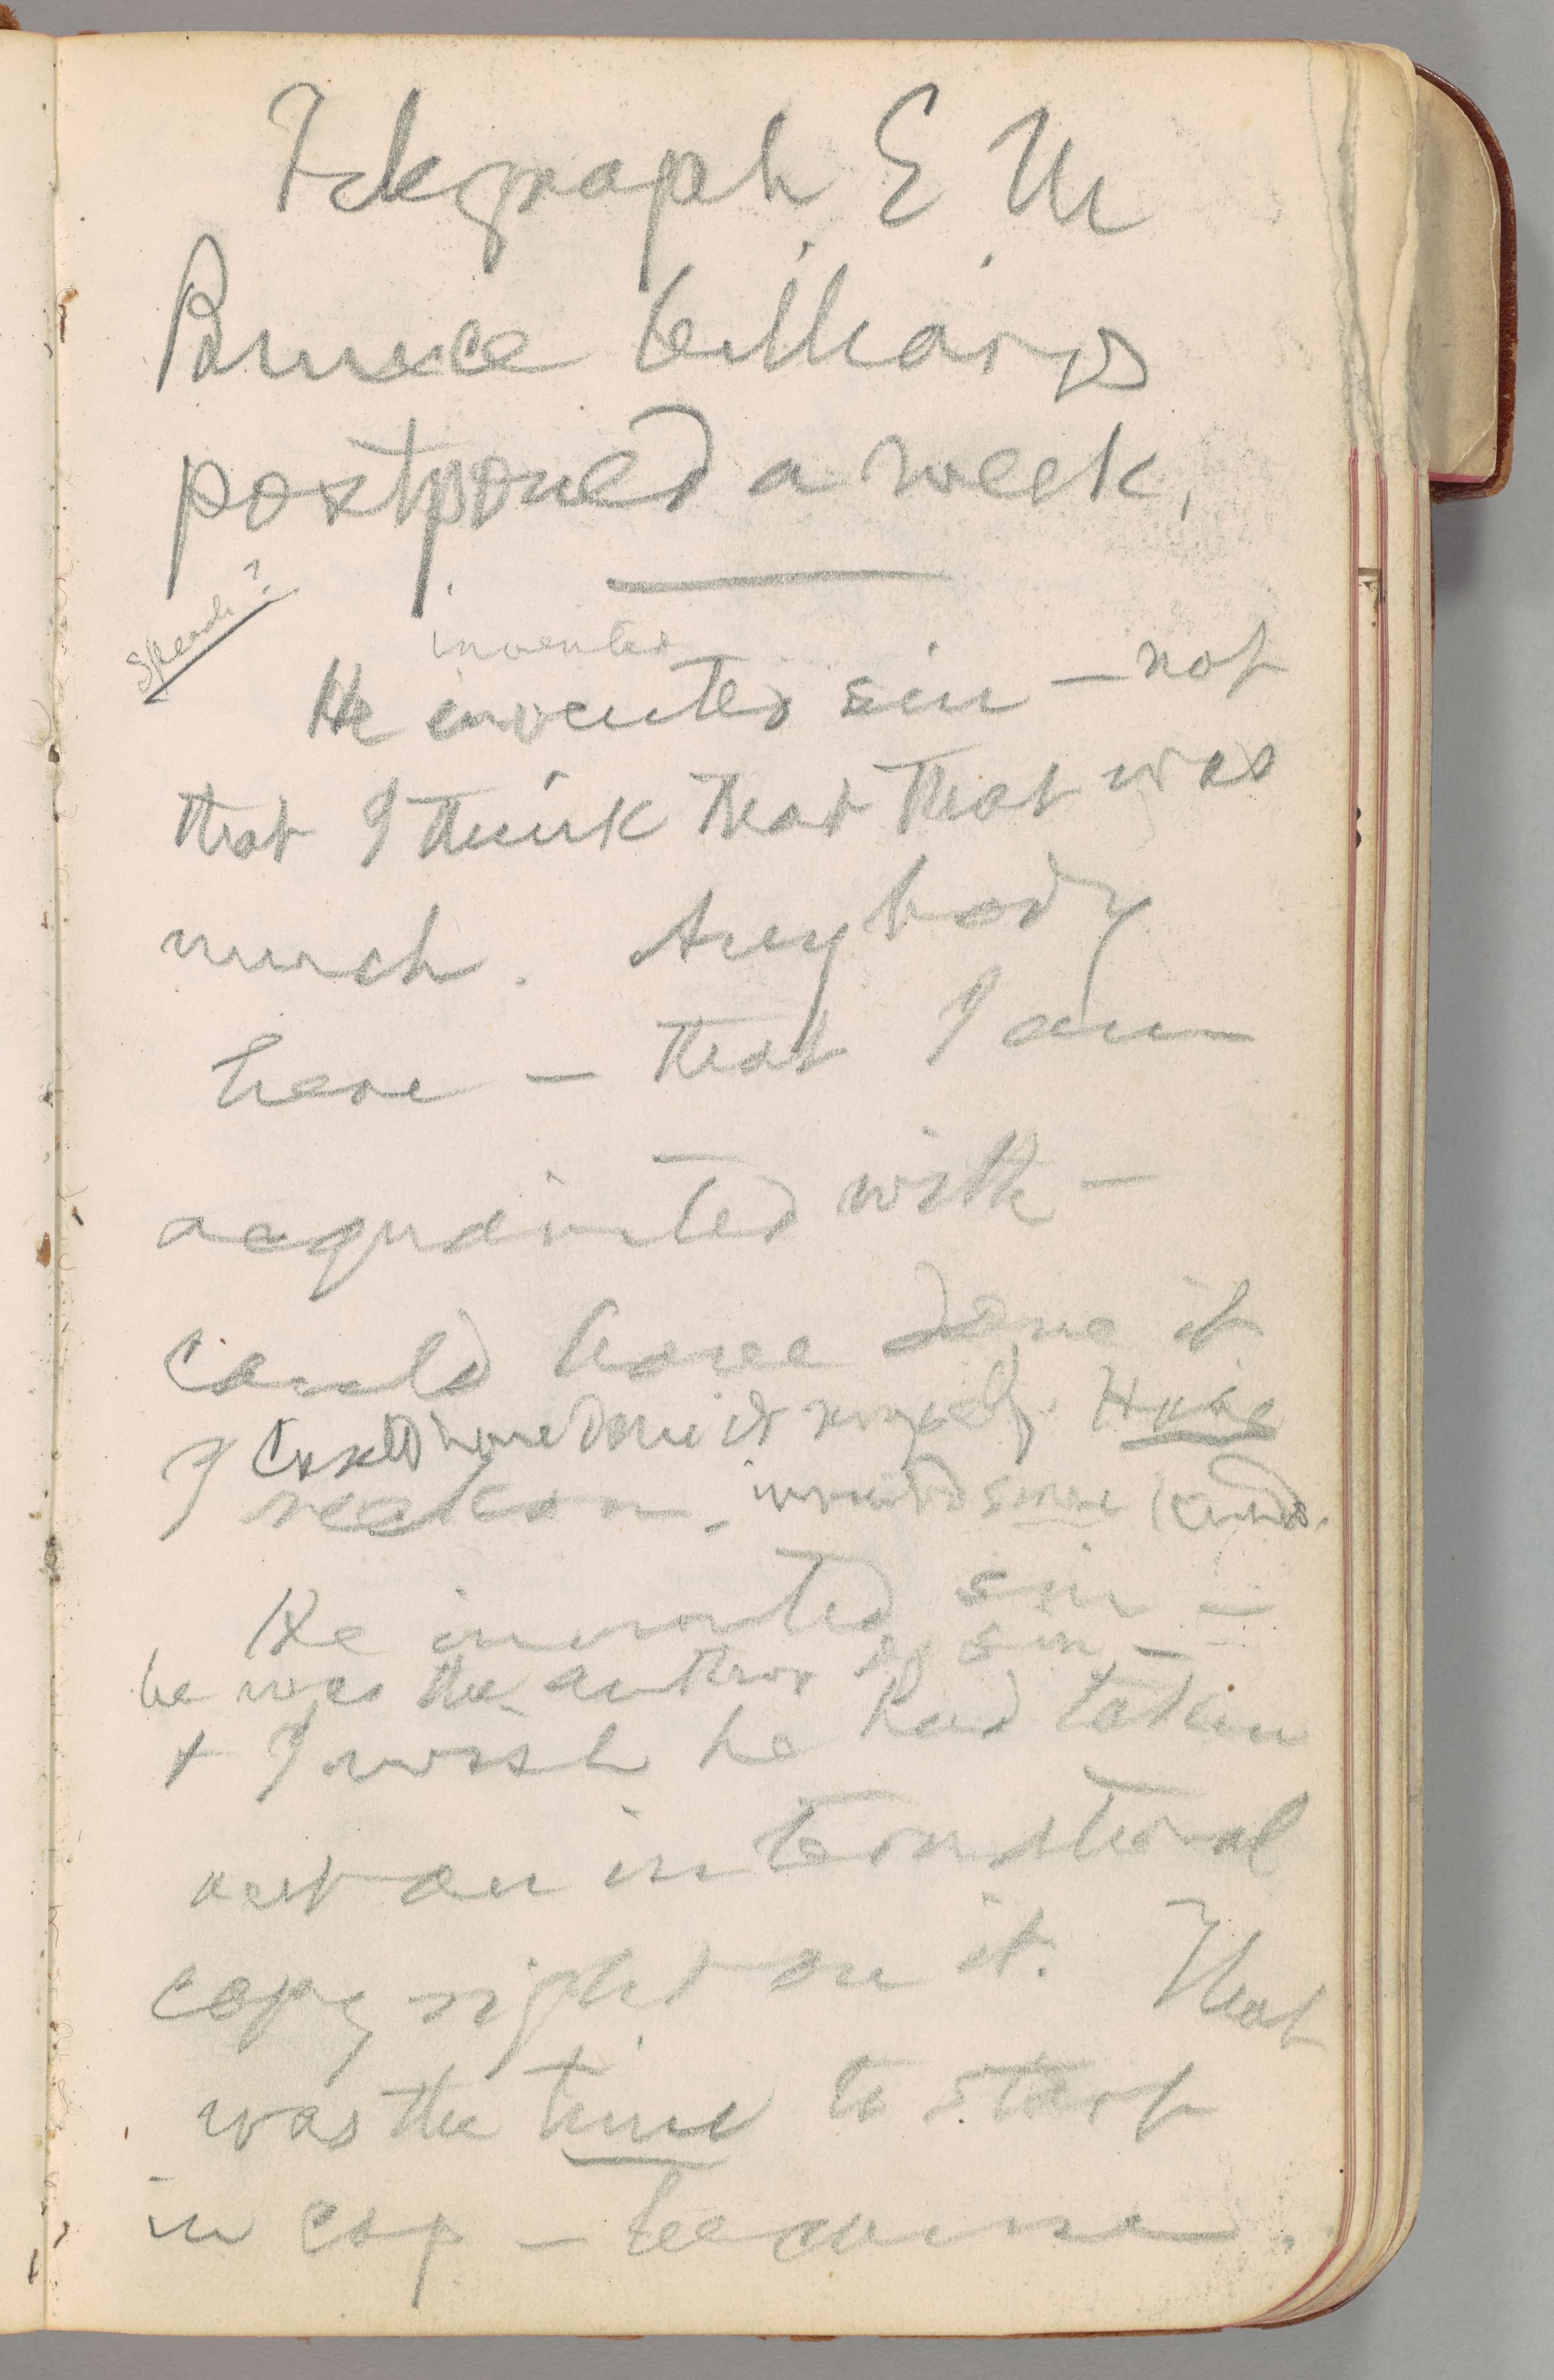 Telegraph E M
Bunce billiards
postponed a week.
Speech?
invented
He invented sin — not
that I think that that was
much. Anybody
here — that I am
acquainted with —
could have done it
I could have done it myself. Have
I reckon. invented some kinds.
He invented sin —
he was the author of sin —
+ I wish he had taken
out an international
copyright on it. That
was the time to start
in cop — because